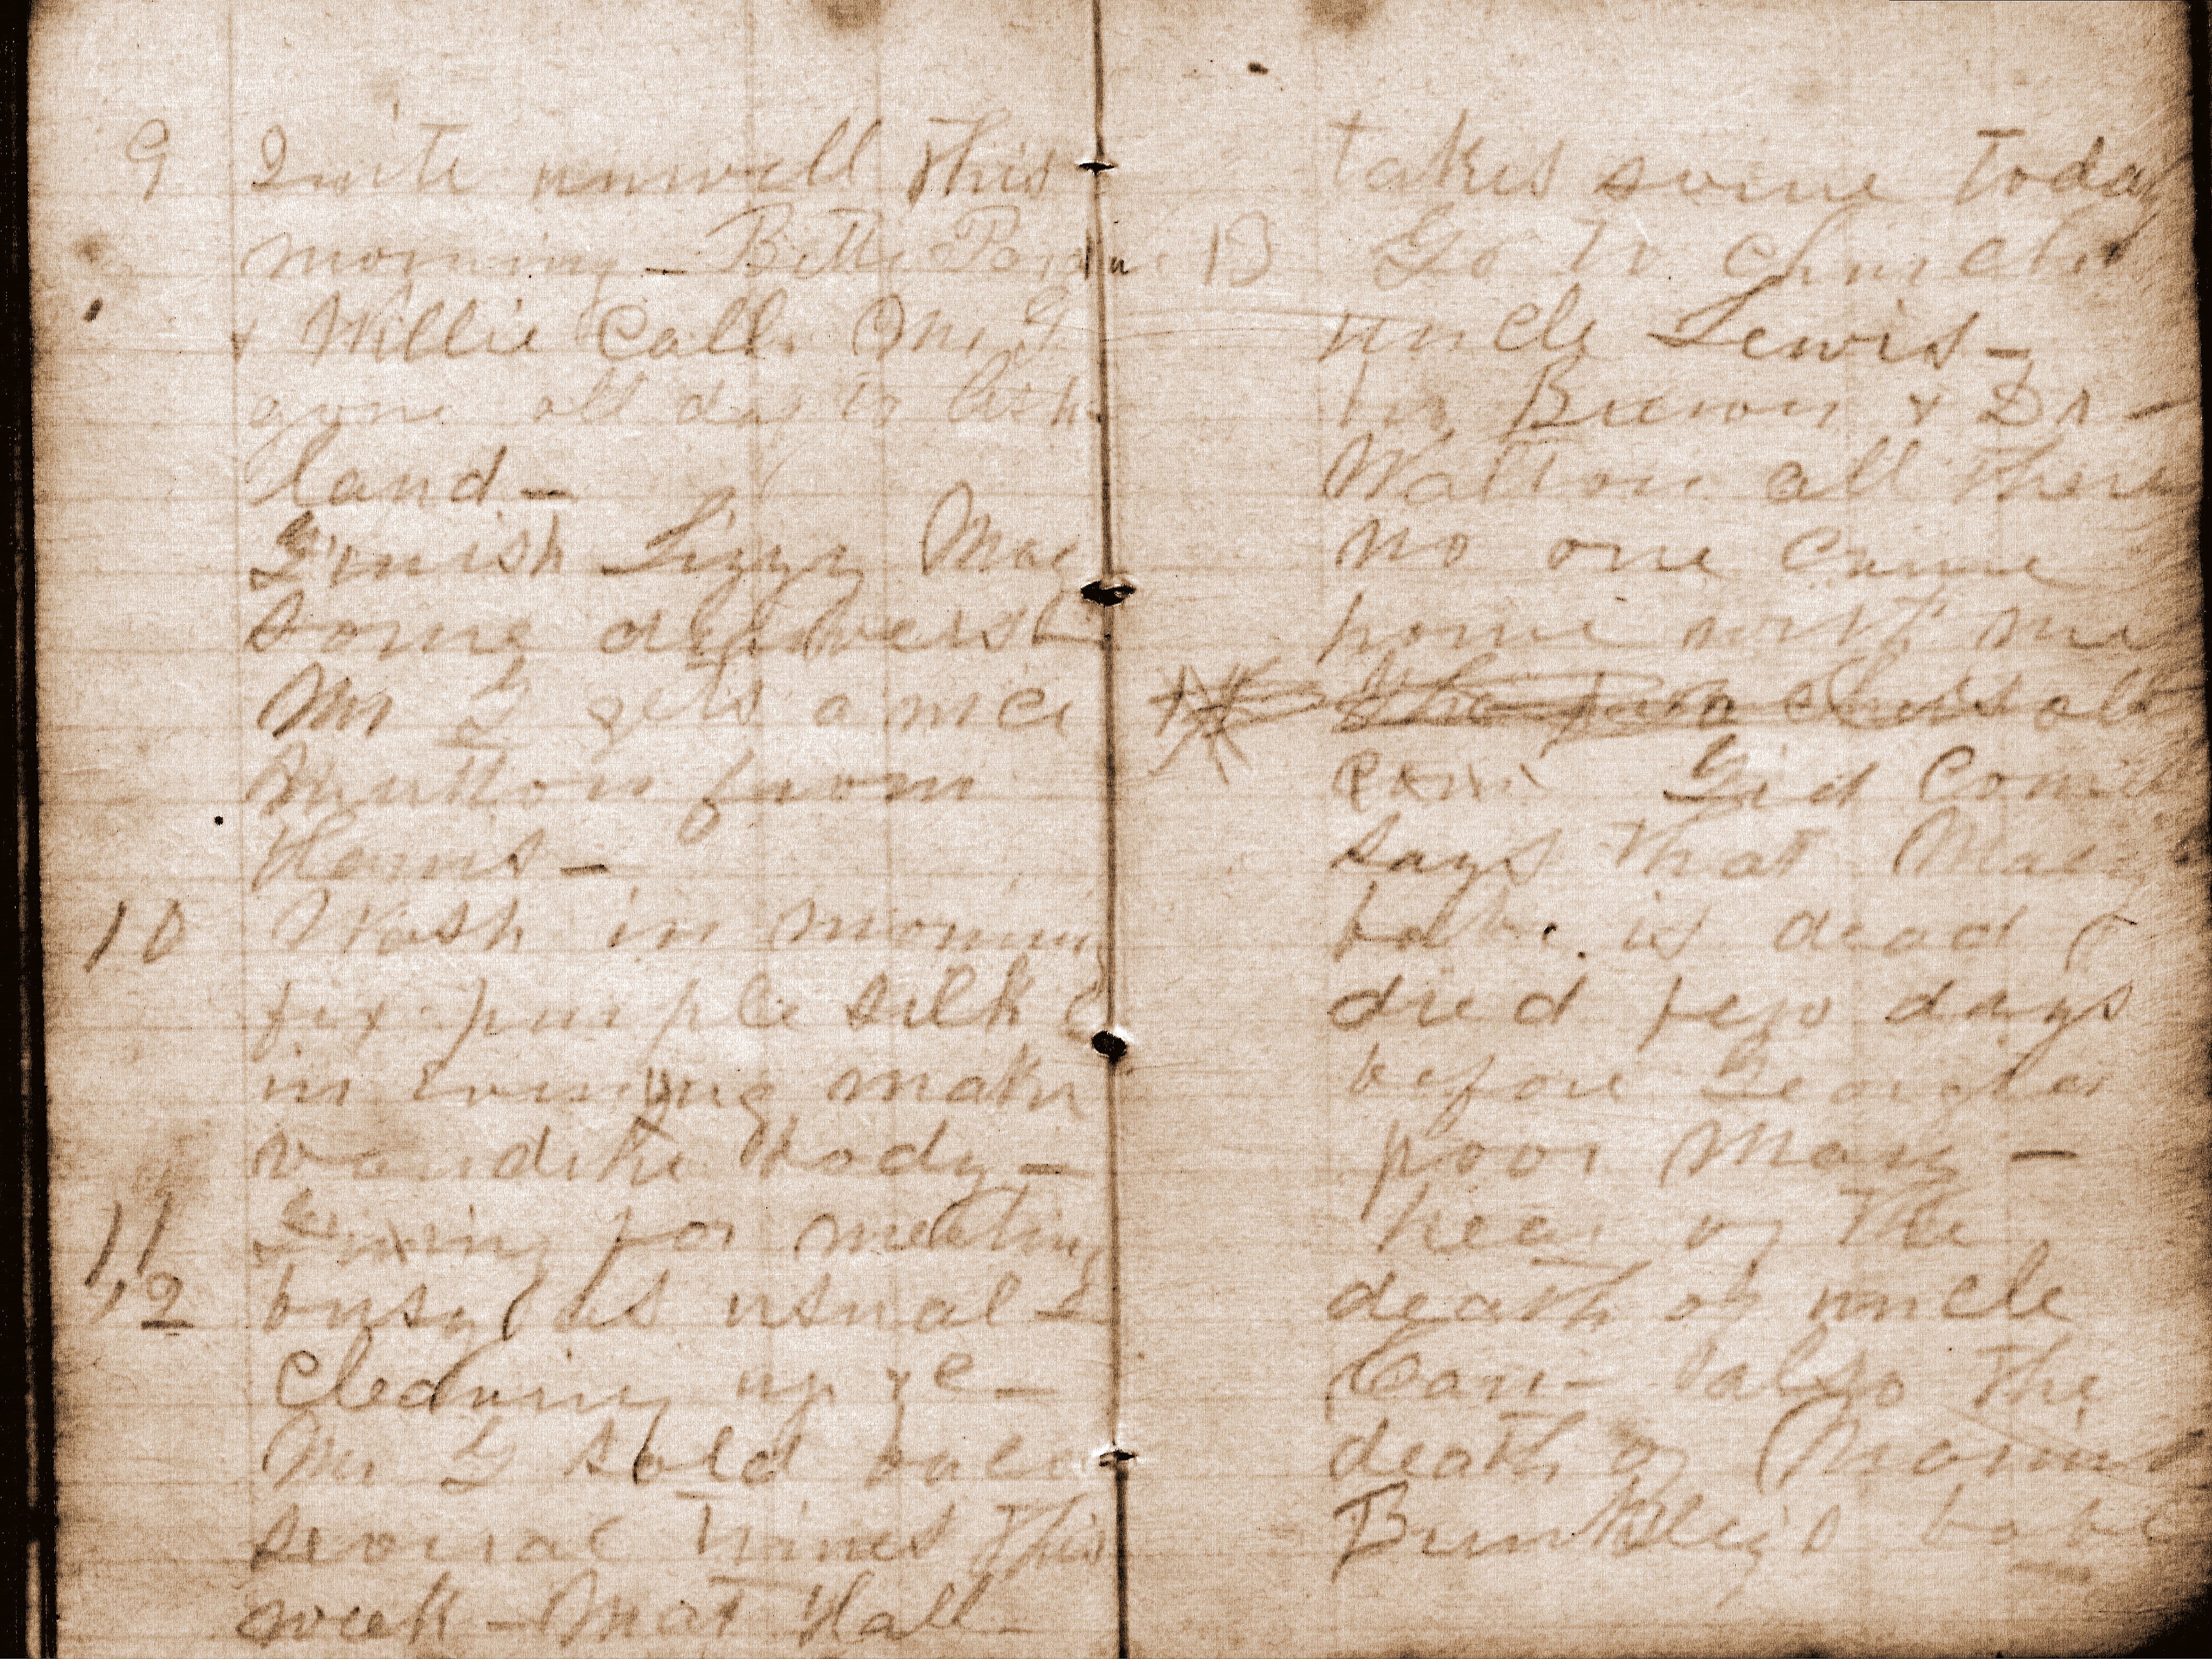 9 Quite unwell this
morning - Betty
& Willie Call. Mr G
gone all day to
land -
Finish Lizzy
Some
Mr G gets a nice
Mutton from
Harris -
10 Wash in morning
fix purple silk &
in evening make
vandike body -
11 Fixing for meeting
12 busy as usual
cleaning up &c -
Mr G sold
several times this
week - Mat Hall
takes some today
13 Go to church
uncle Lewis -
Brown & Dr -
Walton all there
no one came
home with me
Gid Comin
says that
babe is dead
died few days
before Georgia
poor Mary -
hear of the
death of uncle
also the
death of
Bunkley's babe